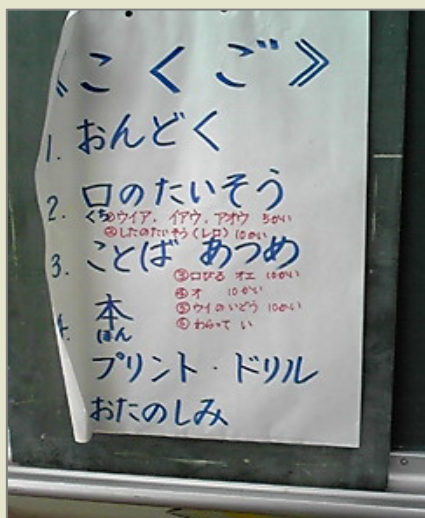 《こくご》
1. おんどく
2. 口のたいそう
くち
①ウイア、イアウ、アオウ 5かい
②したのたいそう(レロ) 10かい
3. ことば あつめ
③口びる オエ 10かい
④オ 10かい
⑤ウイのいどう 10かい
⑥わらって い
4. 本
ほん
プリント・ドリル
おたのしみ